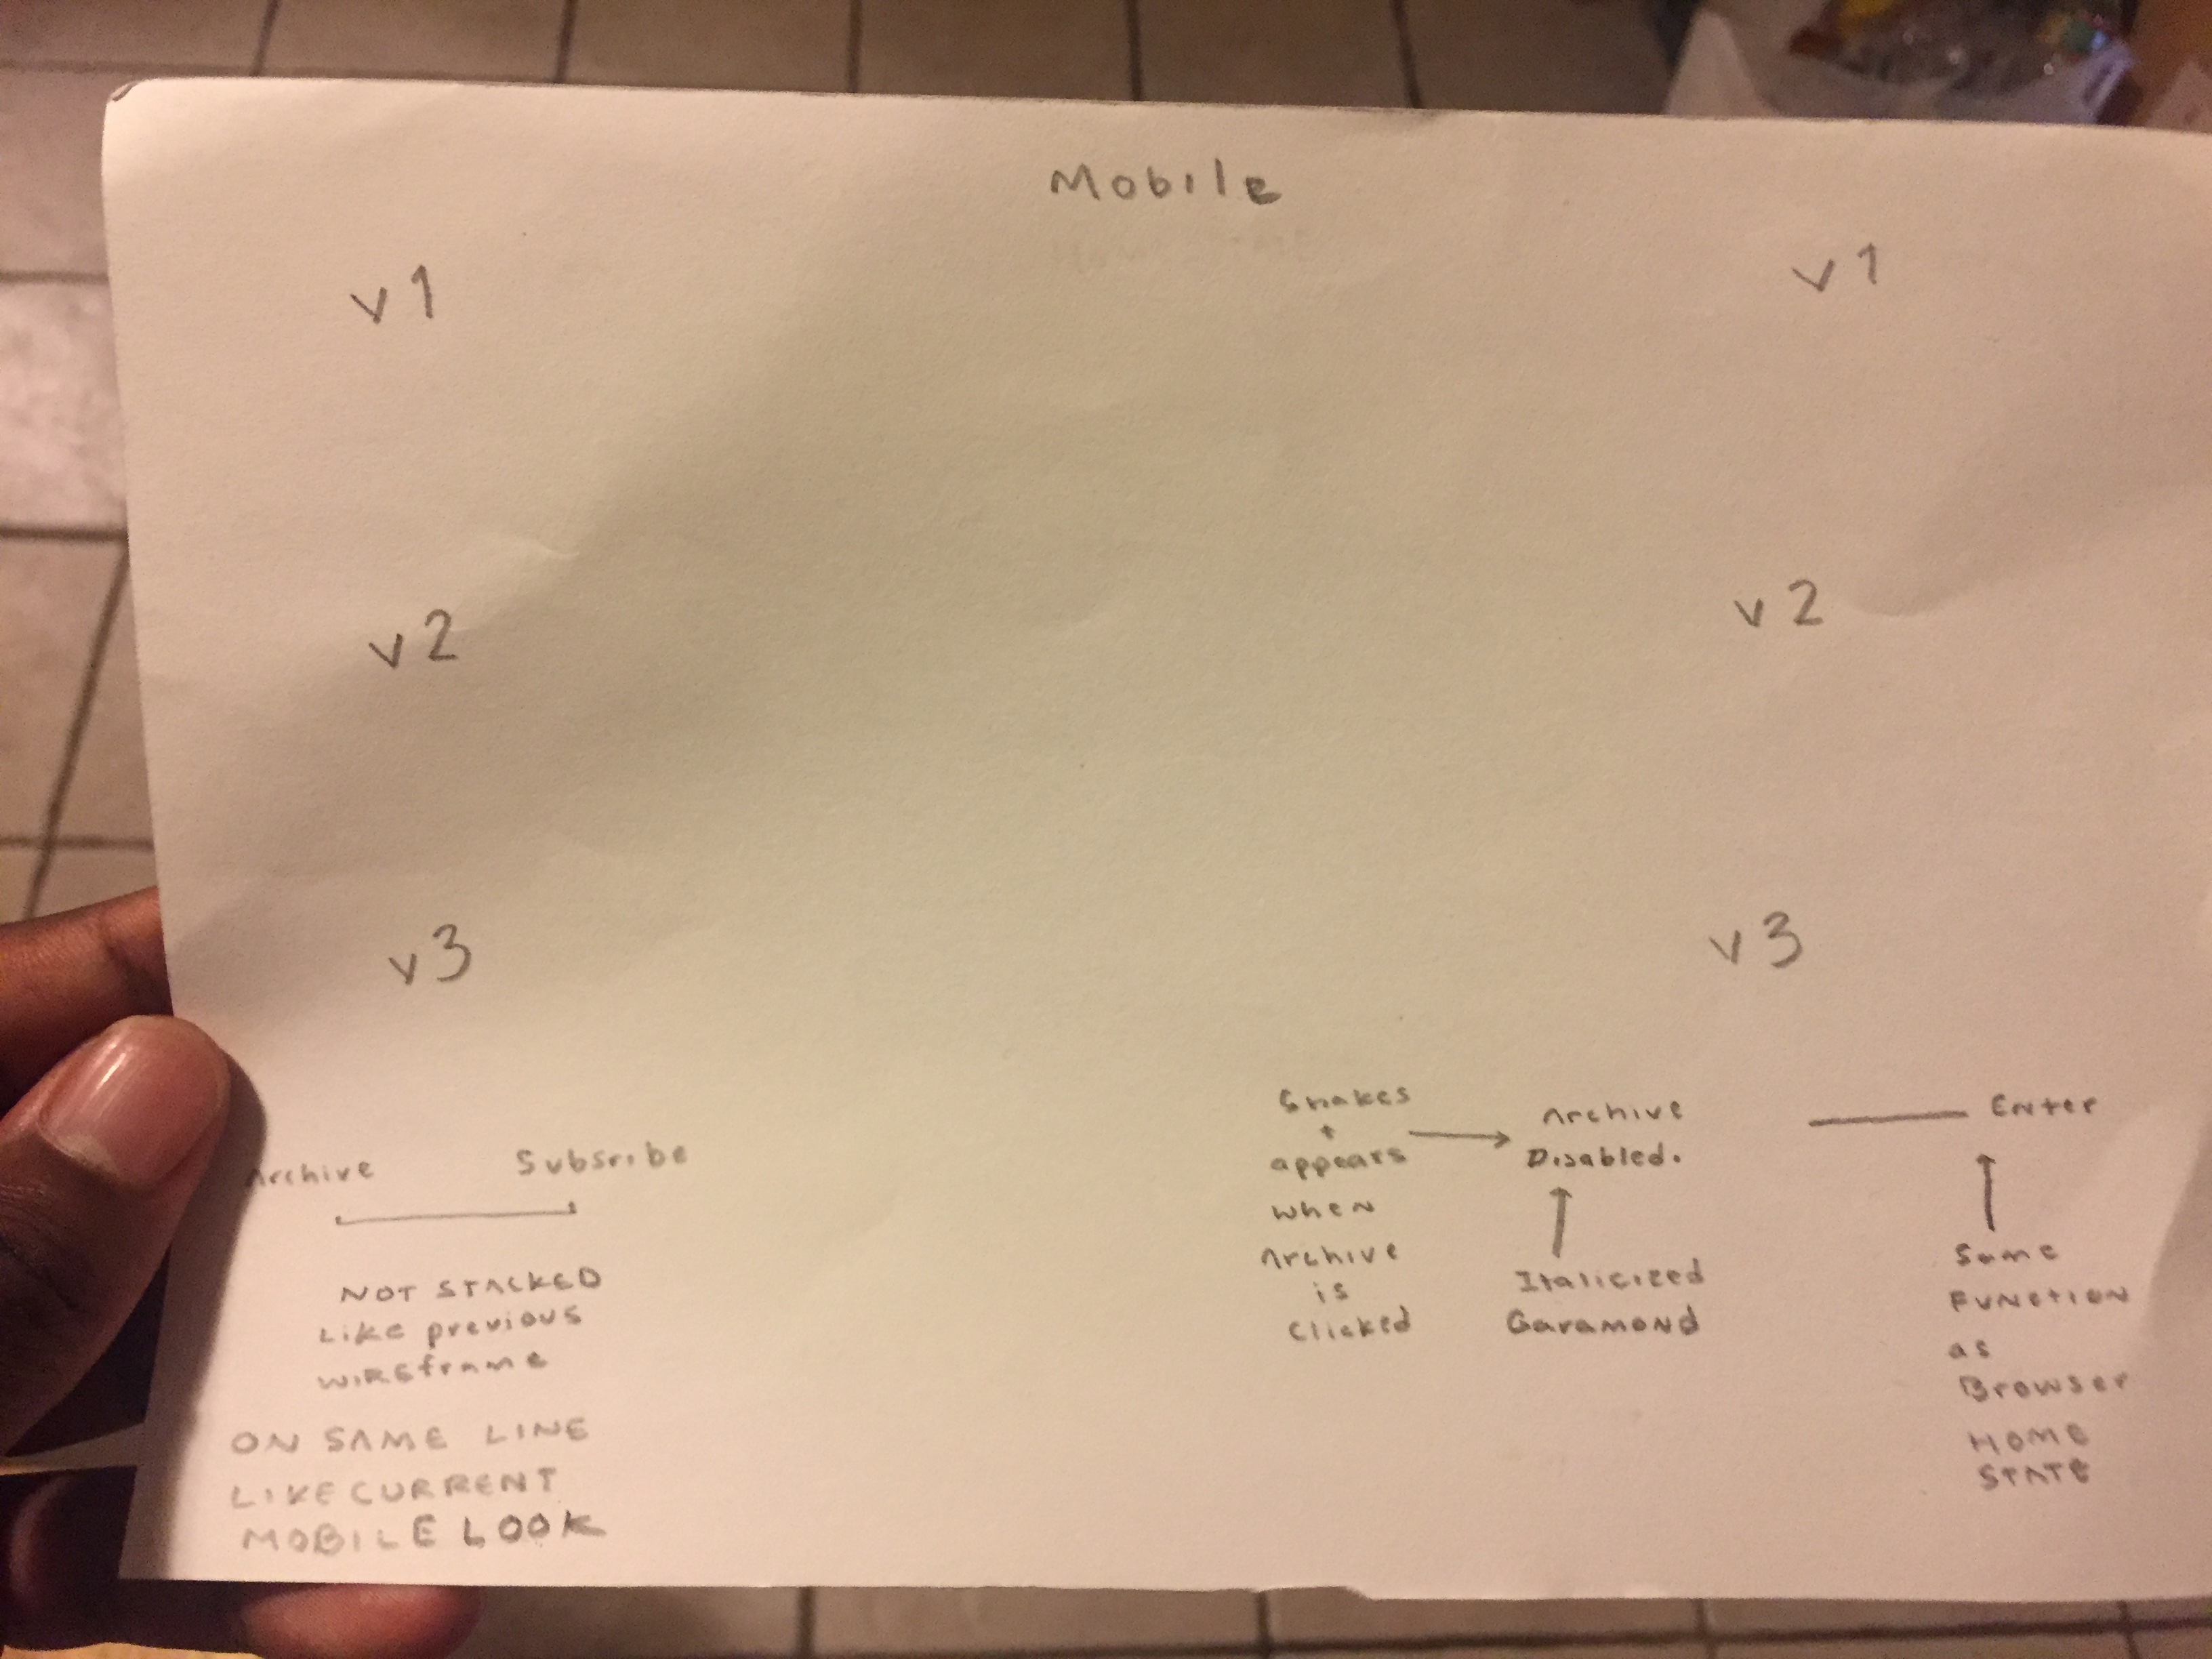 Mobile
v1
v1
v2
v2
v3
v3
Archive Subsribe
NOT STACKED
Like previous
WIREframe
ON SAME LINE
LIKE CURRENT
MOBILE LOOK
Shakes
+
appears
when
Archive
is
clicked
Archive
Disabled.
Italicized
Garamond
Enter
Same
Function
as
Browser
HOME
STATE